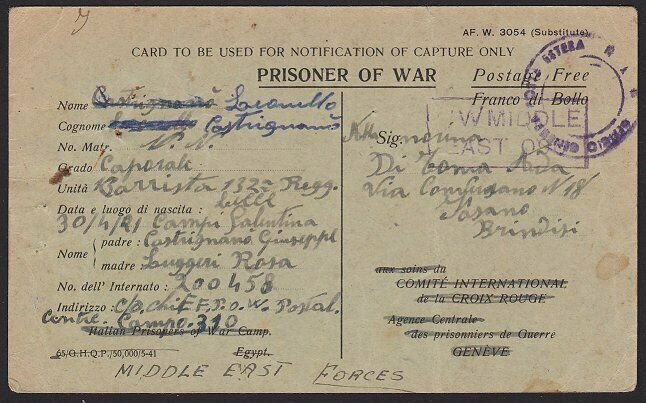 AF. W. 3054 (Substitute)
CARD TO BE USED FOR NOTIFICATION OF CAPTURE ONLY
PRISONER OF WAR
Postage Free
Franco di Bollo
Nome Castrignanò
Cognome Castrignanò
No. Matr. N. N.
Grado Caporale
Unità Barrista 132a Regg.
Data e luogo di nascita : Lecce
30/4/21 Campi Salentina
Nome padre : Castrignano Giuseppe
madre Ruggeri Rosa
No. dell' Internato : 200458
Indirizzo : C/o Chief P.O.W. Postal.
Centre. Campo. 310
Italian Prisoners of War Camp.
65/O.H.Q.P./50,000/5-41 Egypt.
MIDDLE EAST FORCES
W MIDDLE
EAST
ESTERA
Sig.
Di Coma Aida
Via N 18
Fasano
Brindisi
aux soins du
COMITÉ INTERNATIONAL
de la CROIX ROUGE
Agence Centrale
des prisonniers de Guerre
GENÈVE